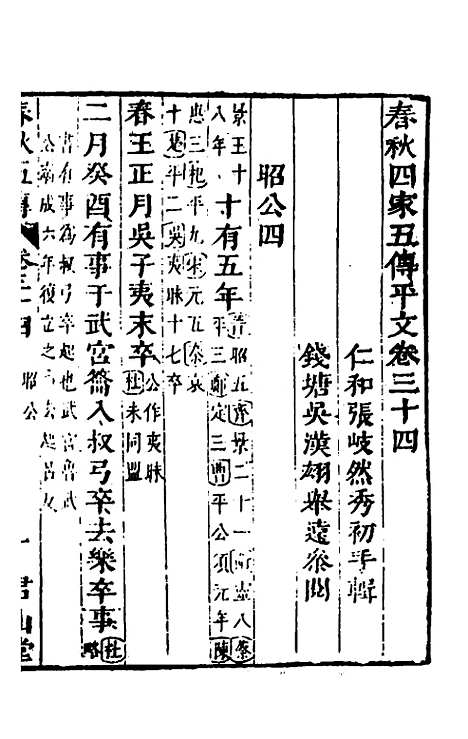 春秋四家五傳平文卷三十四
仁和張岐然秀初手輯
錢塘吳漢翊舉遠叅閱
昭公四
景王十八年十有五年晉昭五齊景二十一衛靈八蔡平三鄭定三曹平公須元年陳
惠三杞平九宋元五秦哀
十楚平二吳夷昧十七卒
春王正月吳子夷末卒公作夷昧杜未同盟
二月癸酉有事于武宮籥入叔弓卒去樂卒事杜略
書有事爲叔弓卒起也武宮魯武
公廟成六年復立之
春秋五傳 卷三十四 昭公 一 君山堂